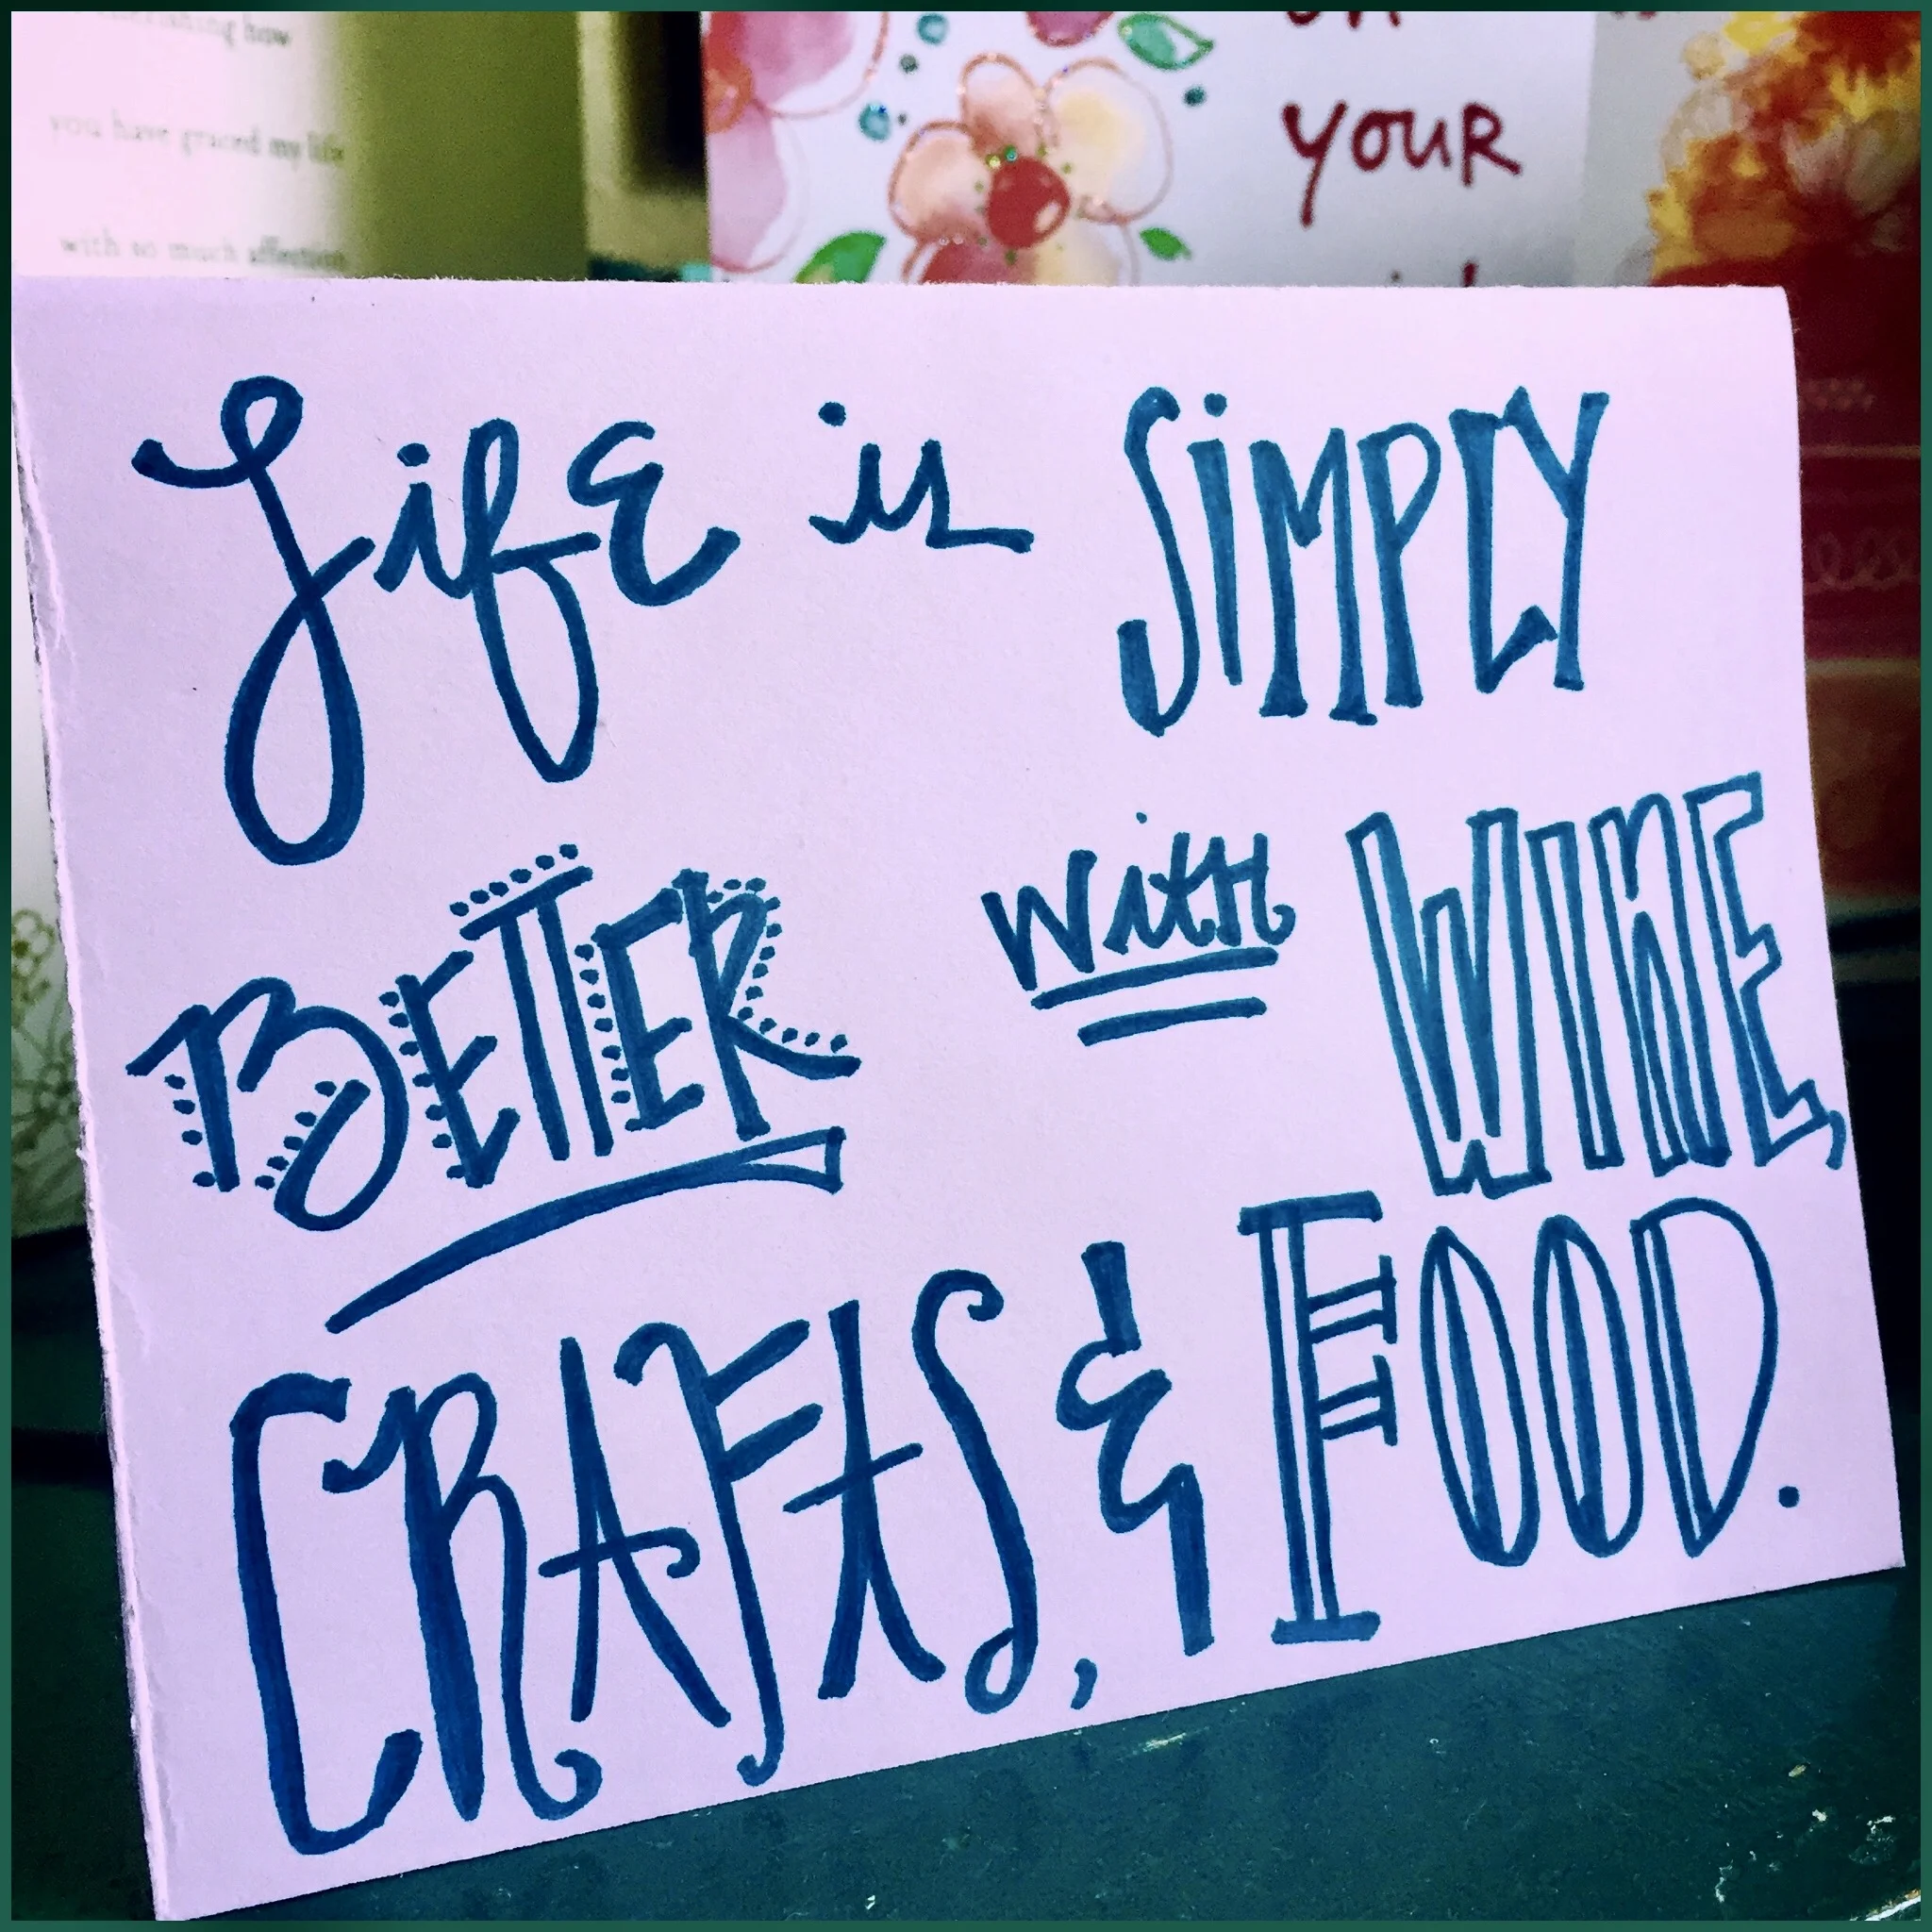 you have graced my life
with so much affection
YOUR
Life is SiMPLY
BETTER with WINE,
CRAFTS, & FOOD.